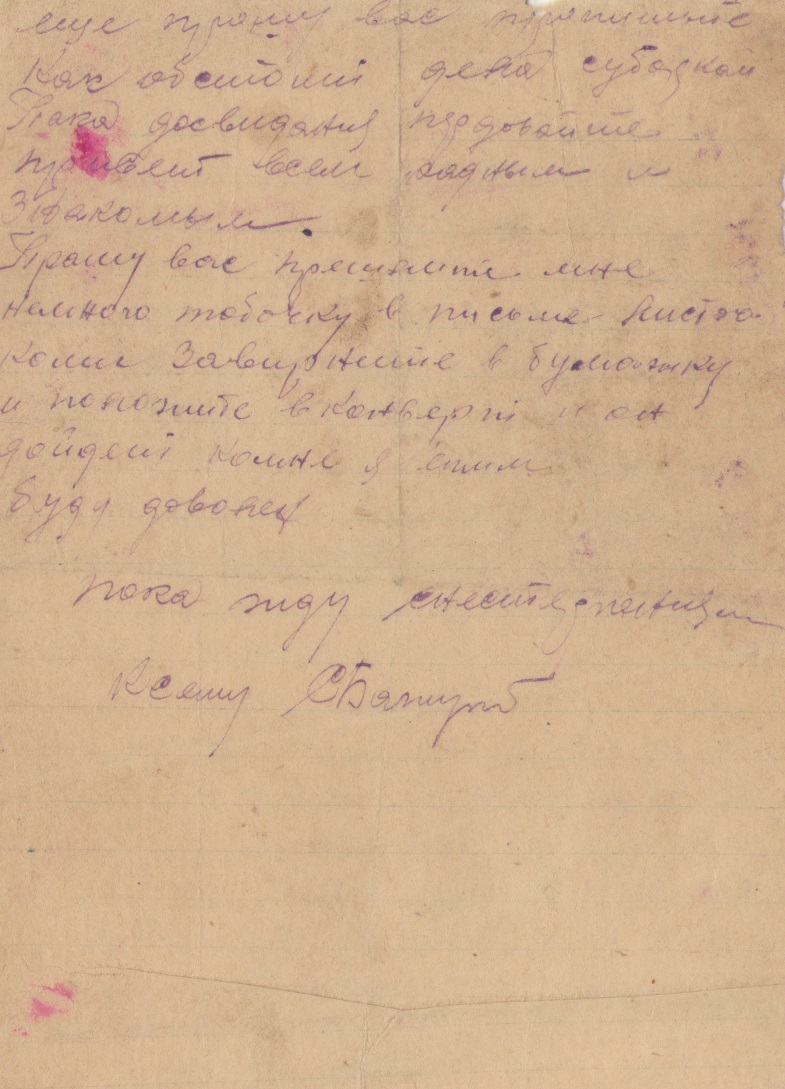 еще прошу вас пропишите
как обстоит дела суборкой
Пака досвидания пердовайте
привет всем радным и
Знакомым.
Прашу вас прешлите мне
немного тобочку в письме листоч
ками завирните в бумажку
и положите в конверт и он
дойдет комне я етим
буду доволен
пока жду
Ксему